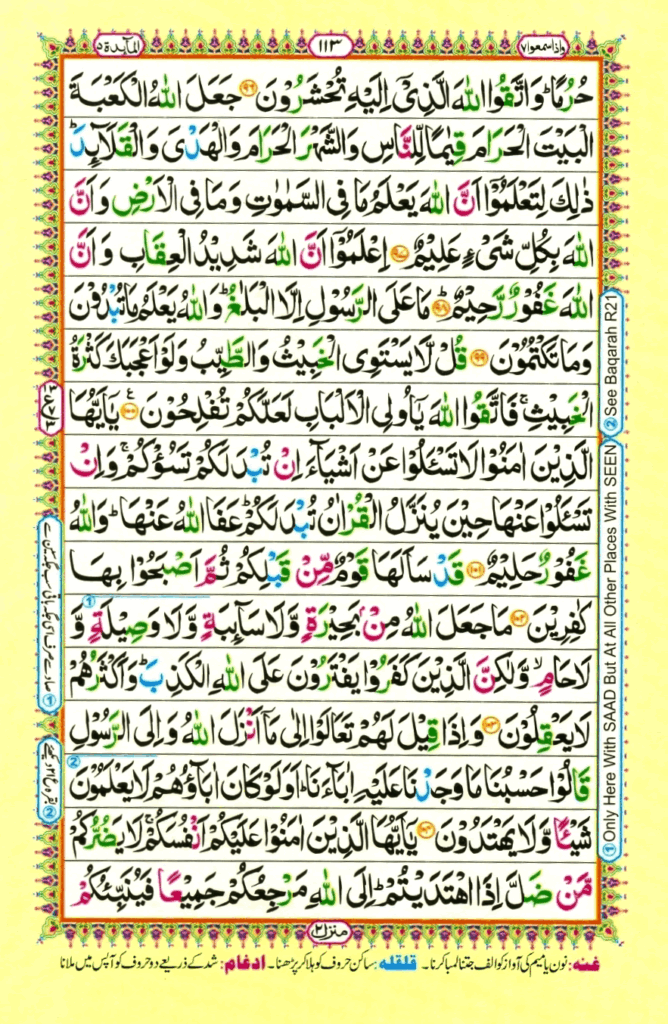 واذاسمعوا۷
۱۱۳
المآىدة۵
حُرُمًا ؕ وَاتَّقُوا اللّٰهَ الَّذِىْۤ اِلَيْهِ تُحْشَرُوْنَ ۹۶ جَعَلَ اللّٰهُ الْكَعْبَةَ
الْبَيْتَ الْحَـرَامَ قِيٰمًا لِّلنَّاسِ وَالشَّهْرَ الْحَـرَامَ وَالْهَدْىَ وَالْقَلَآٮِٕدَ ؕ
ذٰ لِكَ لِتَعْلَمُوْۤا اَنَّ اللّٰهَ يَعْلَمُ مَا فِى السَّمٰوٰتِ وَمَا فِى الْاَرْضِ وَاَنَّ
اللّٰهَ بِكُلِّ شَىْءٍ عَلِيْمٌ ۹۷ اِعْلَمُوْۤا اَنَّ اللّٰهَ شَدِيْدُ الْعِقَابِ وَاَنَّ
اللّٰهَ غَفُوْرٌ رَّحِيْمٌ ؕ ۹۸ مَا عَلَى الرَّسُوْلِ اِلَّا الْبَلٰغُ ؕ وَاللّٰهُ يَعْلَمُ مَا تُبْدُوْنَ
وَمَا تَكْتُمُوْنَ ۹۹ قُلْ لَّا يَسْتَوِى الْخَبِيْثُ وَالطَّيِّبُ وَلَوْ اَعْجَبَكَ كَثْرَةُ
الْخَبِيْثِ ۚ فَاتَّقُوا اللّٰهَ يٰۤاُولِى الْاَلْبَابِ لَعَلَّكُمْ تُفْلِحُوْنَ ۱۰۰ يٰۤاَيُّهَا
الَّذِيْنَ اٰمَنُوْا لَا تَسْـَٔـلُوْا عَنْ اَشْيَآءَ اِنْ تُبْدَ لَكُمْ تَسُؤْكُمْ ۚ وَاِنْ
تَسْـَٔـلُوْا عَنْهَا حِيْنَ يُنَزَّلُ الْقُرْاٰنُ تُبْدَ لَكُمْ ؕ عَفَا اللّٰهُ عَنْهَا ؕ وَاللّٰهُ
غَفُوْرٌ حَلِيْمٌ ۱۰۱ قَدْ سَاَلَهَا قَوْمٌ مِّنْ قَبْلِكُمْ ثُمَّ اَصْبَحُوْا بِهَا
كٰفِرِيْنَ ۱۰۲ مَا جَعَلَ اللّٰهُ مِنْۢ بَحِيْرَةٍ وَّلَا سَآٮِٕبَةٍ وَّلَا وَصِيْلَةٍ وَّ
لَا حَامٍ ۙ وَّلٰـكِنَّ الَّذِيْنَ كَفَرُوْا يَفْتَرُوْنَ عَلَى اللّٰهِ الْكَذِبَ ؕ وَاَكْثَرُهُمْ
لَا يَعْقِلُوْنَ ۱۰۳ وَاِذَا قِيْلَ لَهُمْ تَعَالَوْا اِلٰى مَاۤ اَنْزَلَ اللّٰهُ وَاِلَى الرَّسُوْلِ
قَالُوْا حَسْبُنَا مَا وَجَدْنَا عَلَيْهِ اٰبَآءَنَا ؕ اَوَلَوْ كَانَ اٰبَآؤُهُمْ لَا يَعْلَمُوْنَ
شَيْـًٔـا وَّلَا يَهْتَدُوْنَ ۱۰۴ يٰۤاَيُّهَا الَّذِيْنَ اٰمَنُوْا عَلَيْكُمْ اَنْفُسَكُمْ ۚ لَا يَضُرُّكُمْ
مَّنْ ضَلَّ اِذَا اهْتَدَيْتُمْ ؕ اِلَى اللّٰهِ مَرْجِعُكُمْ جَمِيْعًا فَيُنَبِّئُكُمْ
② See Baqarah R21
① Only Here With SAAD But At All Other Places With SEEN
منزل۲
غنه: نون یا میم کی آواز کو الف جتنا لمبا کرنا۔ قلقله: ساکن حروف کو ہلا کر پڑھنا۔ ادغام: شد کے ذریعے دو حروف کو آپس میں ملانا